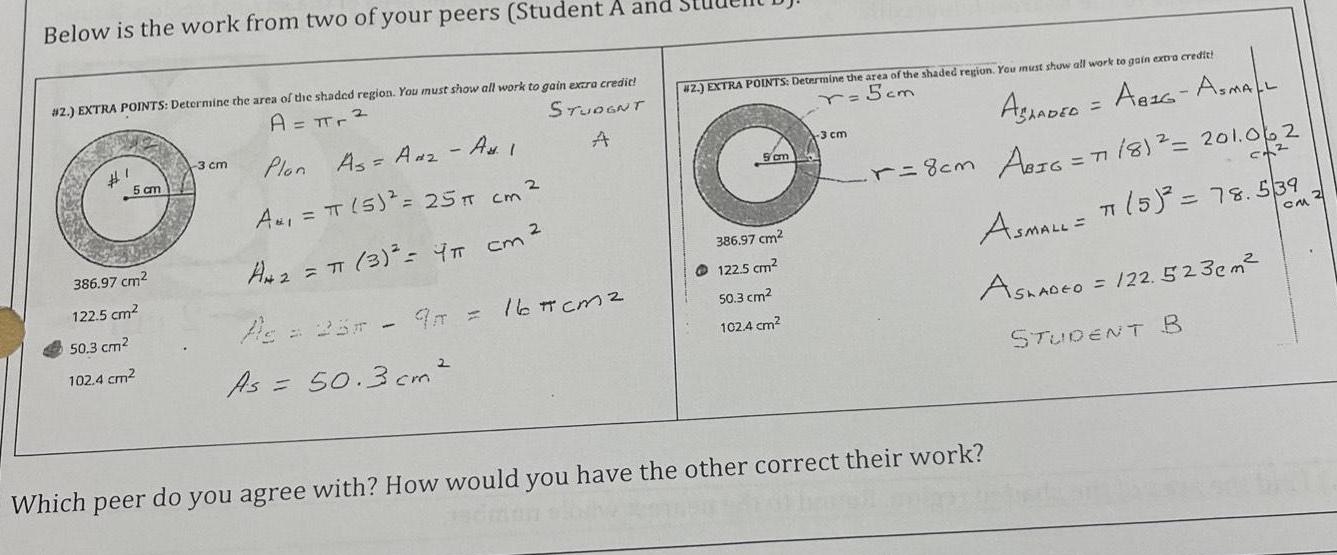 Below is the work from two of your peers (Student A and Student B).
#2.) EXTRA POINTS: Determine the area of the shaded region. You must show all work to gain extra credit!
STUDENT
A
A = πr²
#2
#1
5 cm
3 cm
Plan As = A#2 - A#1
A#1 = π(5)² = 25π cm²
A#2 = π(3)² = 9π cm²
As = 25π - 9π = 16πcm2
As = 50.3 cm²
386.97 cm²
122.5 cm²
50.3 cm²
102.4 cm²
#2.) EXTRA POINTS: Determine the area of the shaded region. You must show all work to gain extra credit!
r = 5cm
3 cm
5 cm
r = 8cm
ASHADED = ABIG - ASMALL
ABIG = π(8)² = 201.062 cm²
ASMALL = π(5)² = 78.539 cm²
ASHADED = 122.523cm²
STUDENT B
386.97 cm²
122.5 cm²
50.3 cm²
102.4 cm²
Which peer do you agree with? How would you have the other correct their work?